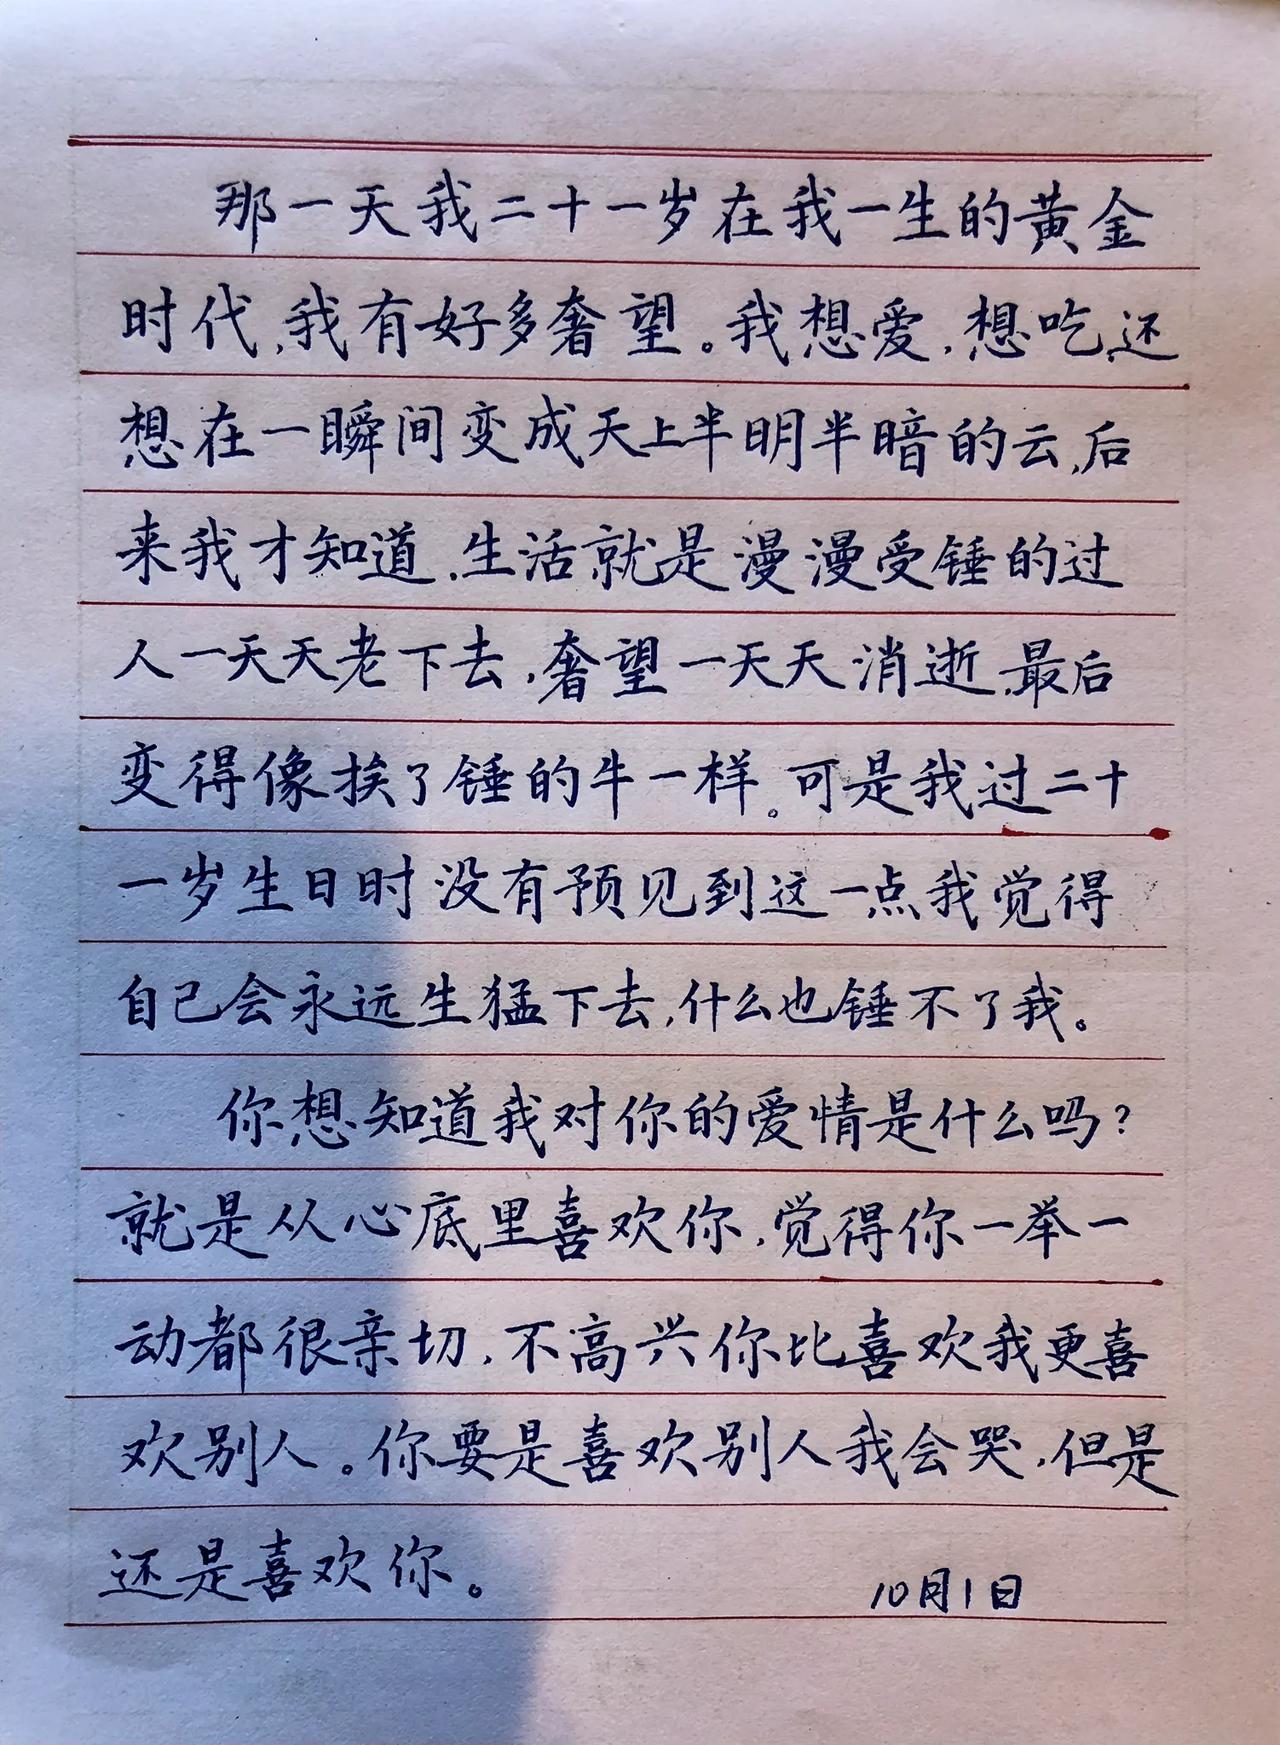 那一天我二十一岁在我一生的黄金
时代,我有好多奢望。我想爱,想吃,还
想在一瞬间变成天上半明半暗的云,后
来我才知道,生活就是漫漫受锤的过
人一天天老下去,奢望一天天消逝,最后
变得像挨了锤的牛一样。可是我过二十
一岁生日时没有预见到这一点我觉得
自己会永远生猛下去,什么也锤不了我。
你想知道我对你的爱情是什么吗?
就是从心底里喜欢你,觉得你一举一
动都很亲切,不高兴你比喜欢我更喜
欢别人。你要是喜欢别人我会哭,但是
还是喜欢你。
10月1日